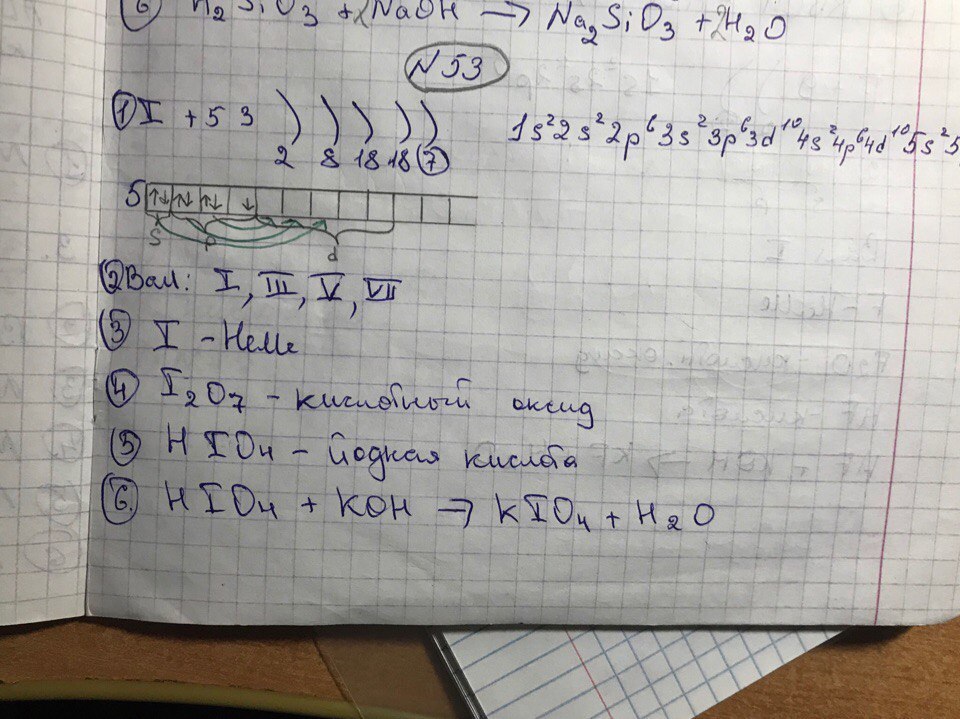 ⑥ H₂SiO₃ + 2NaOH → Na₂SiO₃ + 2H₂O
N53
① I +53 ) ) ) ) ) 1s²2s²2p⁶3s²3p⁶3d¹⁰4s²4p⁶4d¹⁰5s²5
2 8 18 18 ⑦
5 ↑↓ ↑↓ ↑↓ ↓
s p d
② Вал: I, III, V, VII
③ I - НеМе
④ I₂O₇ - кислотный оксид
⑤ HIO₄ - йодная кислота
⑥ HIO₄ + KOH → KIO₄ + H₂O